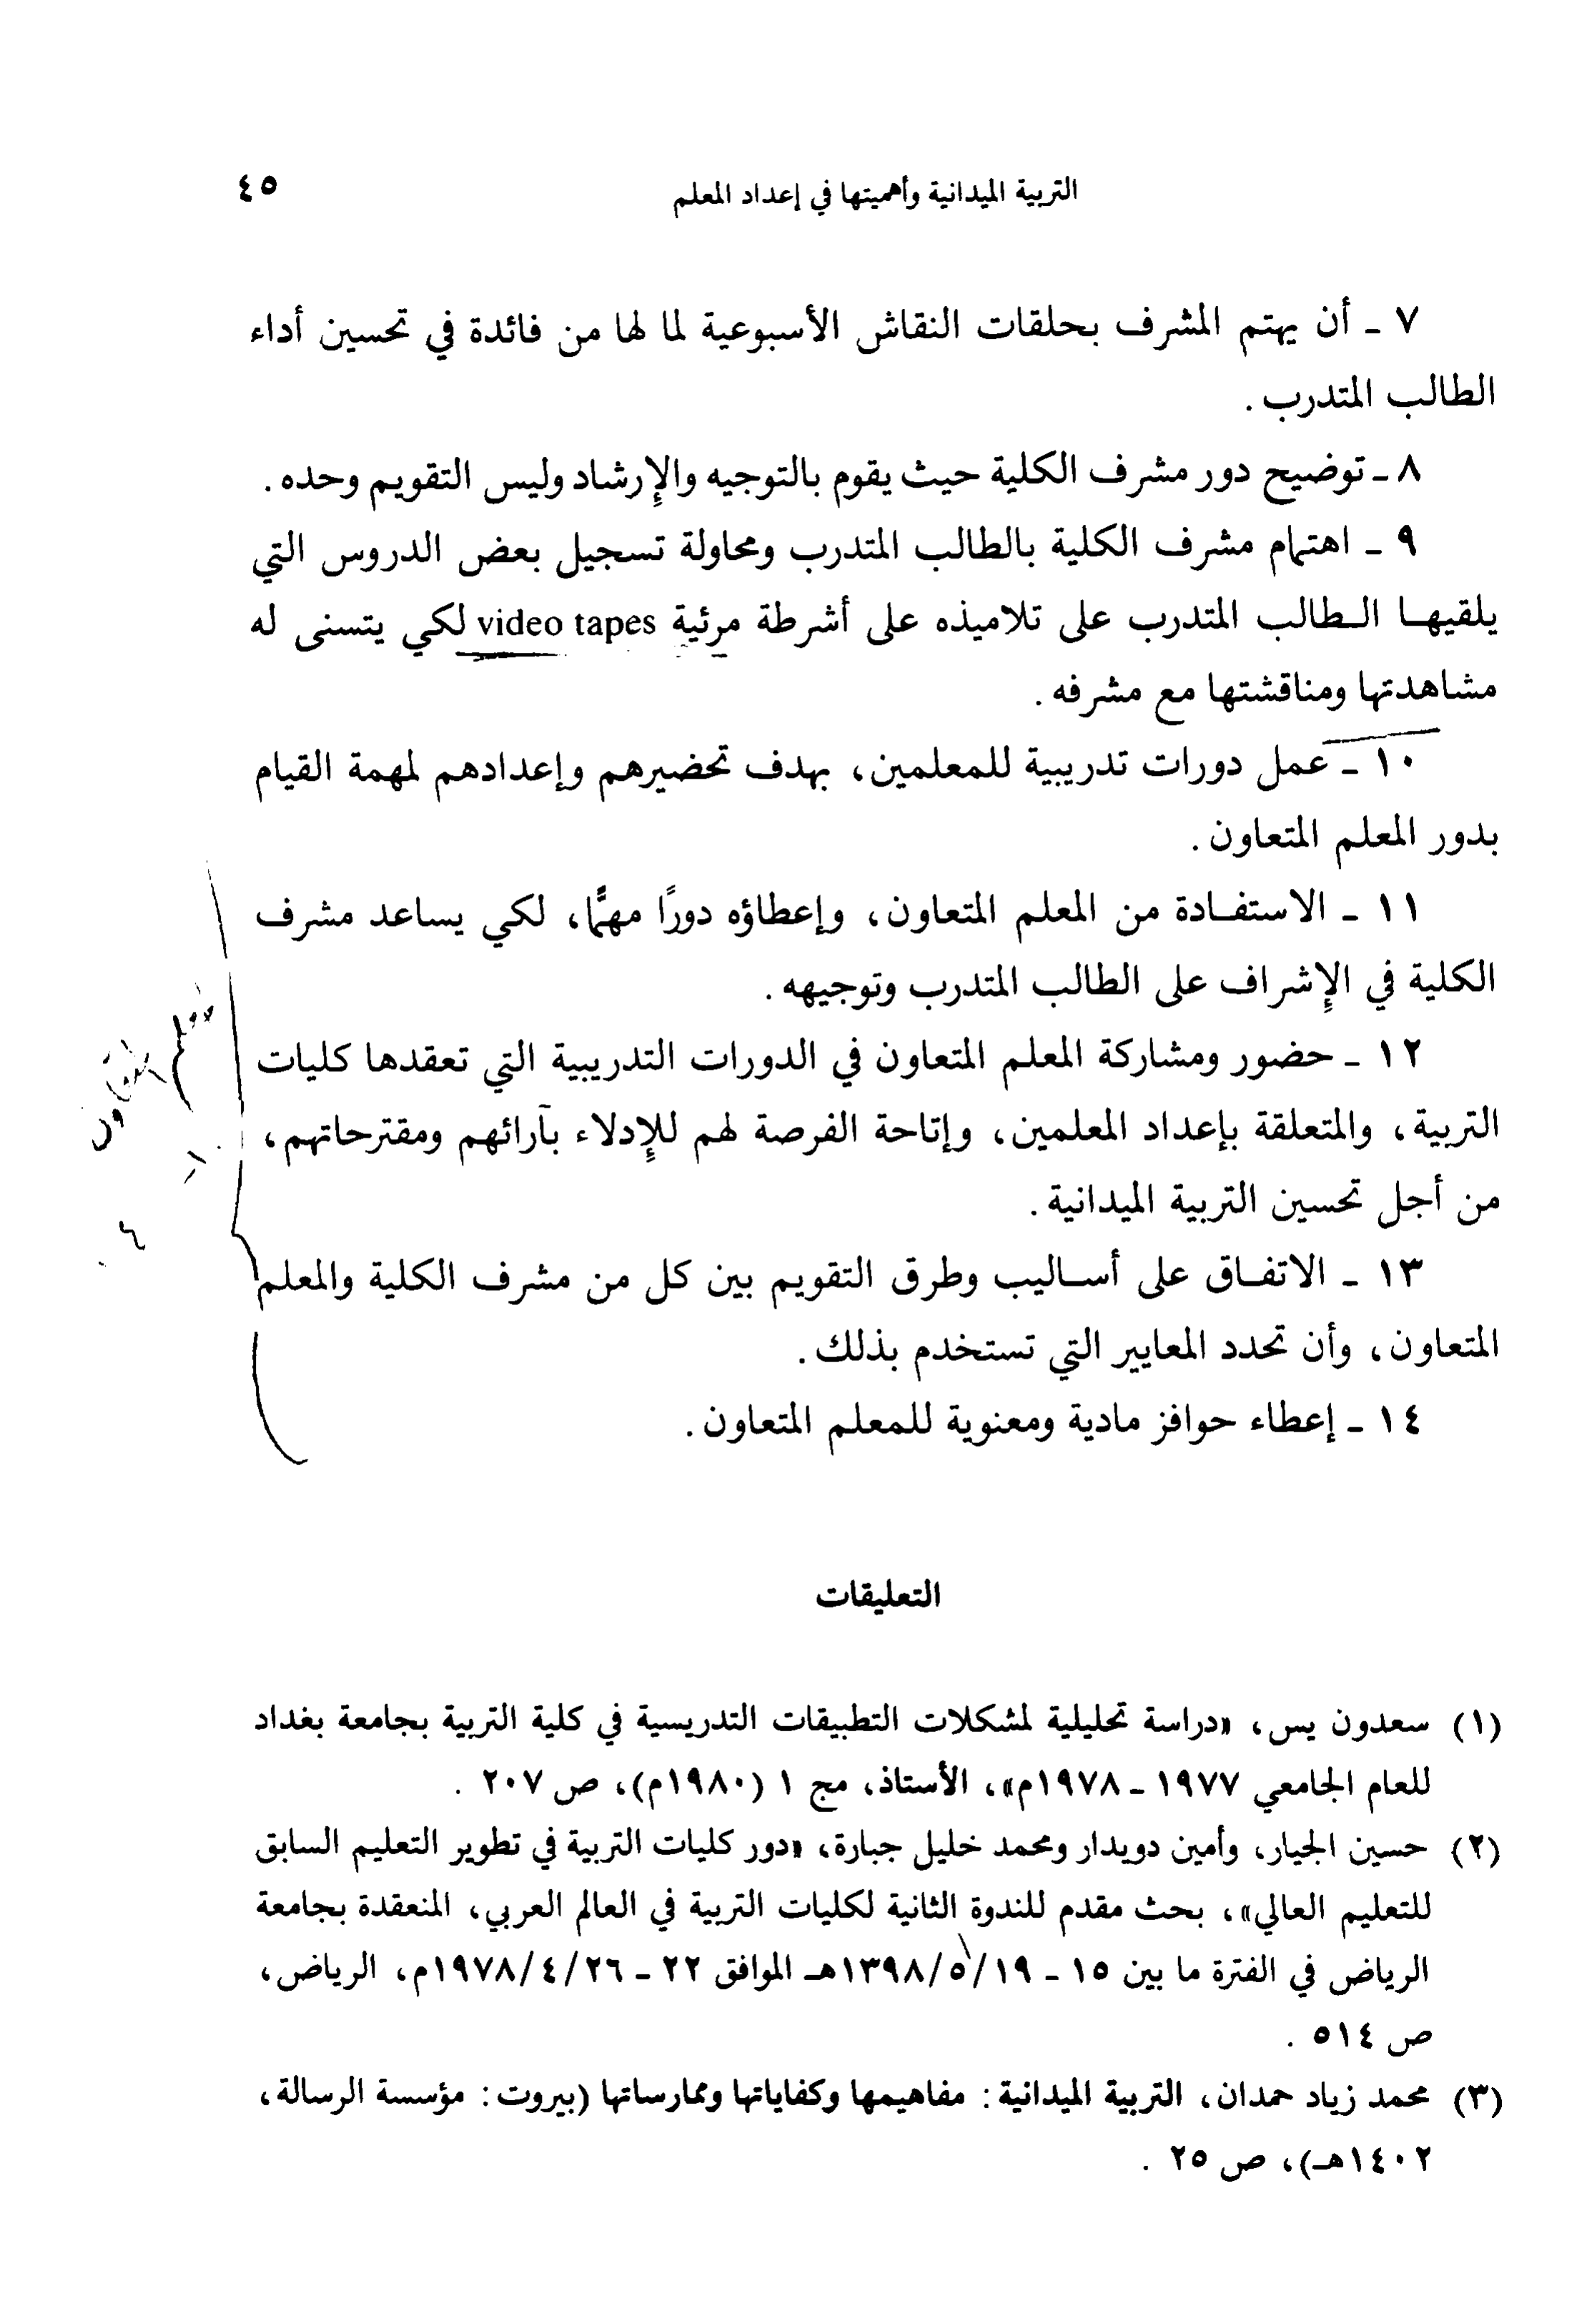 التربية الميدانية وأهميتها في إعداد المعلم
٤٥
٧ ـ أن يهتم المشرف بحلقات النقاش الأسبوعية لما لها من فائدة في تحسين أداء
الطالب المتدرب .
٨ ـ توضيح دور مشرف الكلية حيث يقوم بالتوجيه والإرشاد وليس التقويم وحده .
٩ ـ اهتمام مشرف الكلية بالطالب المتدرب ومحاولة تسجيل بعض الدروس التي
يلقيهـا الـطالب المتدرب على تلاميذه على أشرطة مرئية video tapes لكي يتسنى له
مشاهدتها ومناقشتها مع مشرفه .
١٠ ـ عمل دورات تدريبية للمعلمين، بهدف تحضيرهم وإعدادهم لمهمة القيام
بدور المعلم المتعاون .
١١ ـ الاستفـادة من المعلم المتعاون، وإعطاؤه دورًا مهمًّا، لكي يساعد مشرف
الكلية في الإشراف على الطالب المتدرب وتوجيهه .
١٢ ـ حضور ومشاركة المعلم المتعاون في الدورات التدريبية التي تعقدها كليات
التربية، والمتعلقة بإعداد المعلمين، وإتاحة الفرصة لهم للإدلاء بآرائهم ومقترحاتهم،
من أجل تحسين التربية الميدانية .
١٣ ـ الاتفـاق على أسـاليب وطرق التقويم بين كل من مشرف الكلية والمعلم
المتعاون، وأن تحدد المعايير التي تستخدم بذلك .
١٤ ـ إعطاء حوافز مادية ومعنوية للمعلم المتعاون .
التعليقات
(١) سعدون يس، «دراسة تحليلية لمشكلات التطبيقات التدريسية في كلية التربية بجامعة بغداد
للعام الجامعي ١٩٧٧ ـ ١٩٧٨م»، الأستاذ، مج ١ (١٩٨٠م)، ص ٢٠٧ .
(٢) حسين الجيار، وأمين دويدار ومحمد خليل جبارة، «دور كليات التربية في تطوير التعليم السابق
للتعليم العالي»، بحث مقدم للندوة الثانية لكليات التربية في العالم العربي، المنعقدة بجامعة
الرياض في الفترة ما بين ١٥ ـ ١٣٩٨/٥/١٩هـ الموافق ٢٢ ـ ١٩٧٨/٤/٢٦م، الرياض،
ص ٥١٤ .
(٣) محمد زياد حمدان، التربية الميدانية : مفاهيمها وكفاياتها وممارساتها (بيروت : مؤسسة الرسالة،
١٤٠٢هـ)، ص ٢٥ .